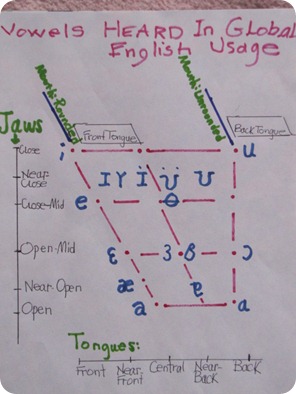 Vowels HEARD In Global
English Usage
Mouth: Rounded
Mouth: Unrounded
Jaws
Front Tongue
Back Tongue
Close
i u
Near-
Close
I Y Ï Ü ʊ
Close-Mid
e ɵ
Open-Mid
ɛ 3 ɞ ɔ
Near-Open
æ ɐ
Open
a a
Tongues:
Front Near- Central Near- Back
Front Back